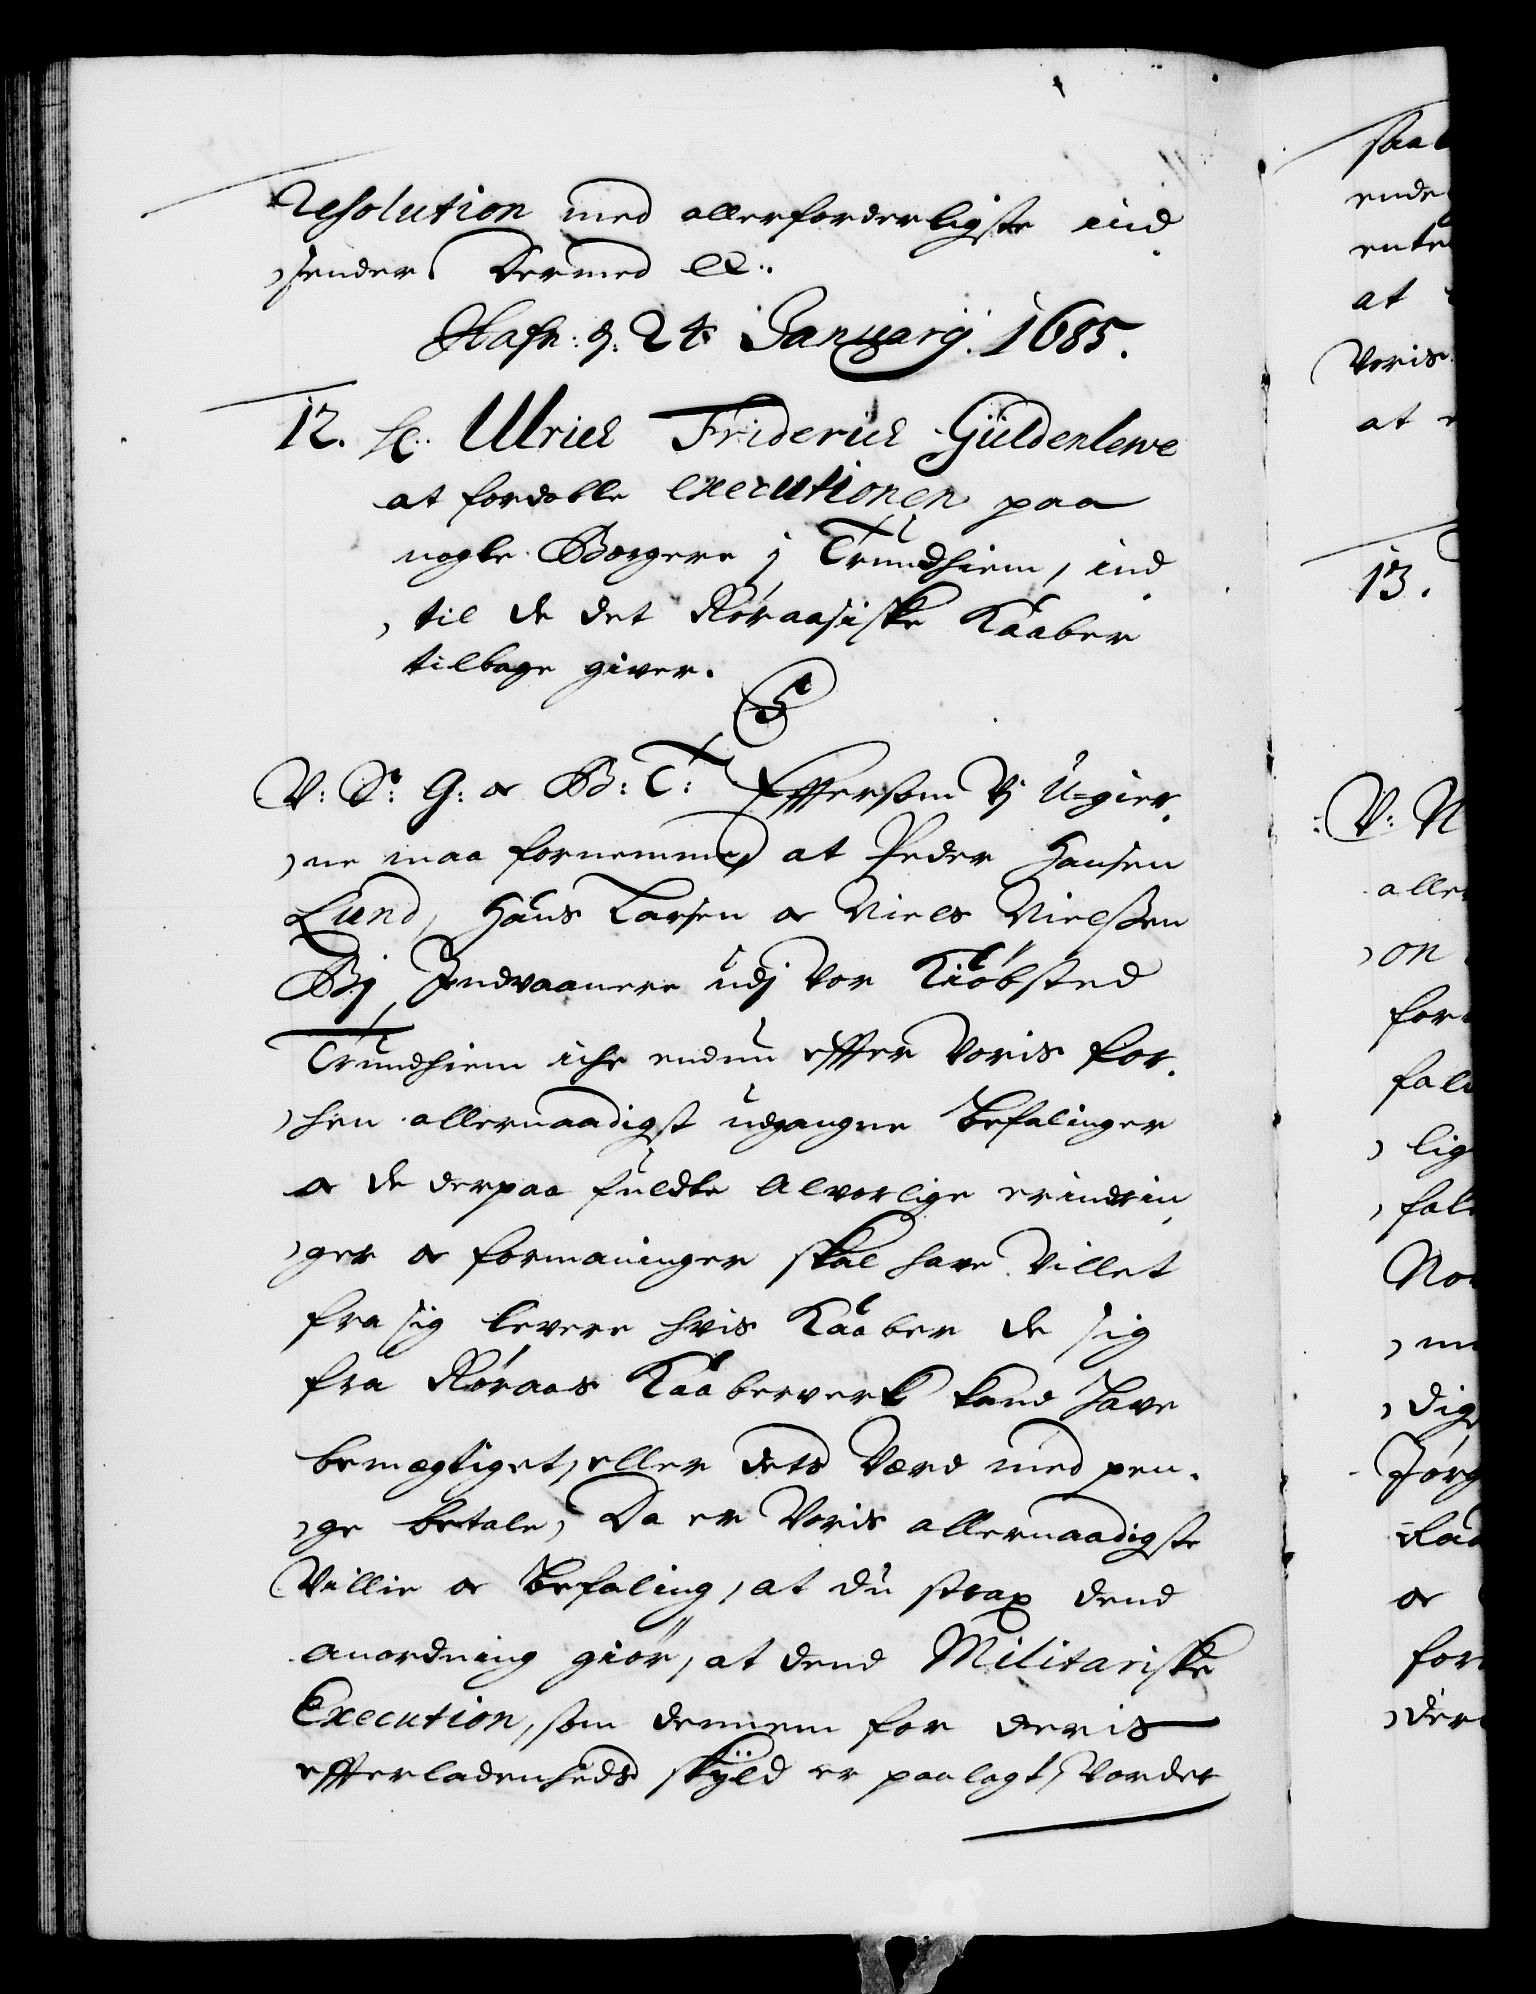 Resolution med allerforderligste ind
sender Dermed &.
Hafn: d. 24 Januarij. 1685.
12. H: Ulrich Friderich Güldenlewe
at fordoble executionen paa
nogle Borgere j Trundhiem, ind
til de det Røraasiske Kaaber
tilbage giver.
V: S: G: oc B: T: Effersom Vj U-gier
ne maa fornemme at Peder Hansen
Lund, Hans Larsen oc Niels Nielssen
Bÿ Indvaanere udj vor Kiöbsted
Trundhiem iche endnu effter Voris for
hen allernaadigst udgangne Befalinger
oc de derpaa fuldte Alvorlige erindrin
ger oc formaninger skal have Villet
fra sig levere hvis Kaaber de sig
fra Røraas Kaaberverk kand have
bemægtiget, eller dets Værd med pen
ge betale, Da er Voris allernaadigste
Villie oc Befaling, at du strax dend
anordning giør, at dend Militariske
Execution, som dennem for deris
efferladenheds skÿld er paalagt, Vorder
ende
at
Voris
at
13.
V: N
aller
on
for
lig
Nor
dig
Jörg
oc
for
der